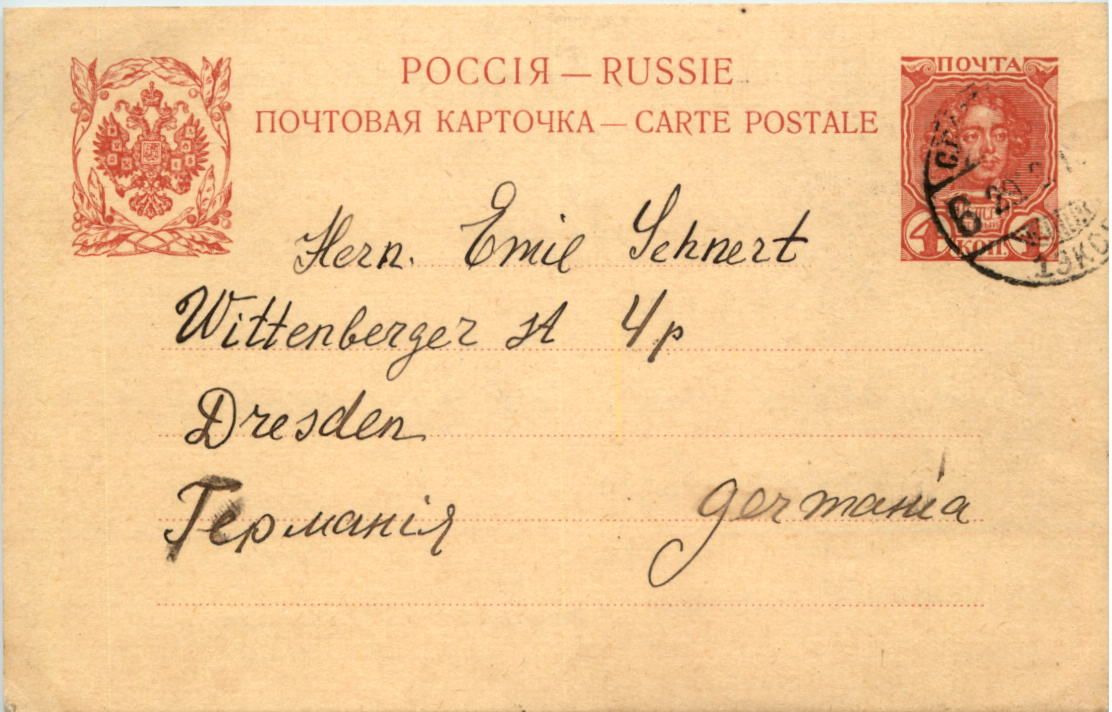 РОССІЯ — RUSSIE
ПОЧТОВАЯ КАРТОЧКА — CARTE POSTALE
ПОЧТА
4 КОП. 4
Б 29
Hern. Emil Sehnert
Wittenberger st 4p
Dresden
Германія germania